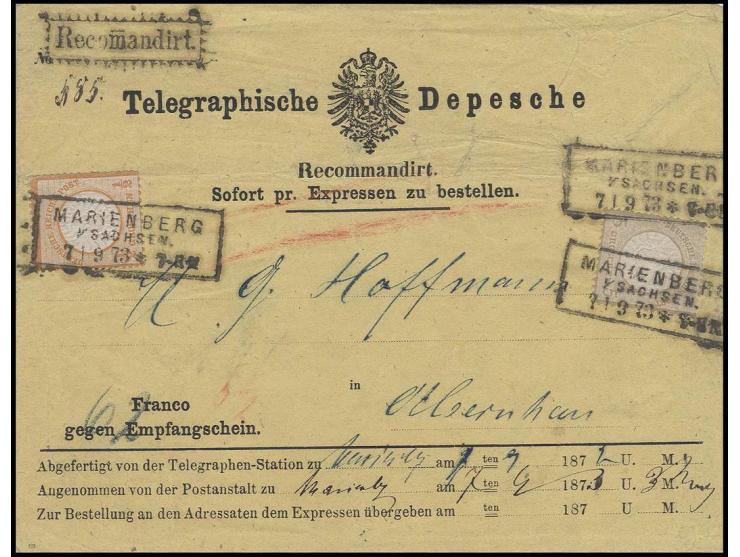 Recomandirt.
No
585.
Telegraphische Depesche
Recommandirt.
Sofort pr. Expressen zu bestellen.
MARIENBERG
I/SACHSEN.
7 I 9 73 *
MARIENBERG
I/SACHSEN.
7 I 9 73 *
MARIENBERG
I/SACHSEN.
7 I 9 73 *
G. Hoffmann
in
Olbernhau
Franco
62
gegen Empfangschein.
Abgefertigt von der Telegraphen-Station zu Marienbg am 7 ten 9 187 U. M.
Angenommen von der Postanstalt zu Marienbg am 7 ten 9 1873 U. 3 M.
Zur Bestellung an den Adressaten dem Expressen übergeben am ten 187 U. M.